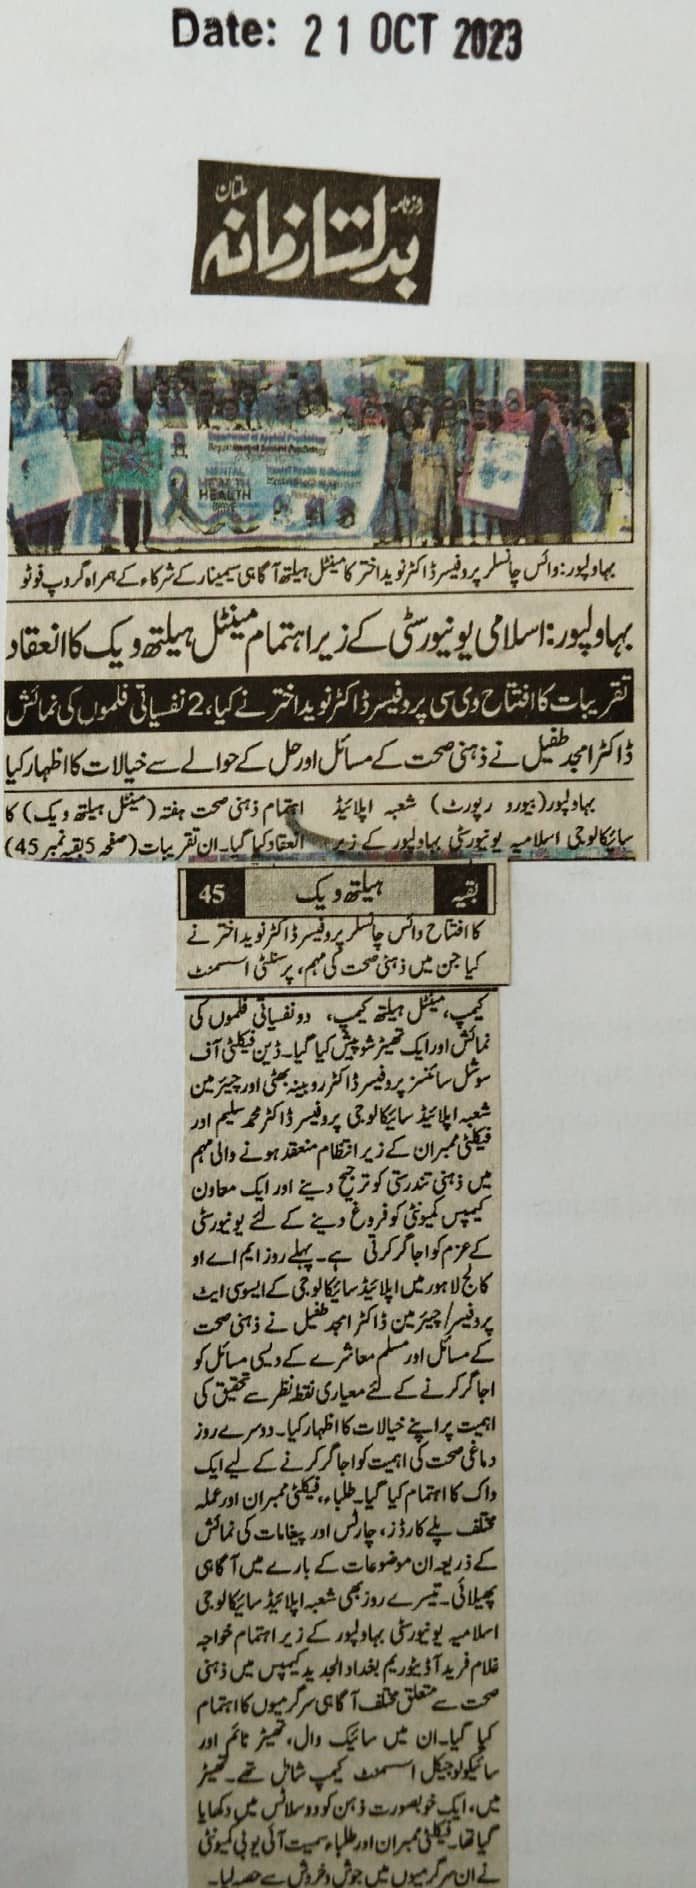 Date: 21 OCT 2023
روزنامہ
ملتان
بدلتا زمانہ
Department of Applied Psychology
MENTAL
HEALTH
بہاولپور: وائس چانسلر پروفیسر ڈاکٹر نوید اختر کا مینٹل ہیلتھ آگاہی سیمینار کے شرکاء کے ہمراہ گروپ فوٹو
بہاولپور: اسلامی یونیورسٹی کے زیر اہتمام مینٹل ہیلتھ ویک کا انعقاد
تقریبات کا افتتاح وی سی پروفیسر ڈاکٹر نوید اختر نے کیا، 2 نفسیاتی فلموں کی نمائش
ڈاکٹر امجد طفیل نے ذہنی صحت کے مسائل اور حل کے حوالے سے خیالات کا اظہار کیا
بہاولپور (بیورو رپورٹ) شعبہ اپلائیڈ
سائیکالوجی اسلامیہ یونیورسٹی بہاولپور کے زیر
اہتمام ذہنی صحت ہفتہ (مینٹل ہیلتھ ویک) کا
انعقاد کیا گیا۔ ان تقریبات (صفحہ 5 بقیہ نمبر 45)
بقیہ ہیلتھ ویک 45
کا افتتاح وائس چانسلر پروفیسر ڈاکٹر نوید اختر نے
کیا جن میں ذہنی صحت کی مہم، پرسنلٹی اسسمنٹ
کیمپ، مینٹل ہیلتھ کیمپ، دو نفسیاتی فلموں کی
نمائش اور ایک تھیٹر شو پیش کیا گیا۔ ڈین فیکلٹی آف
سوشل سائنسز پروفیسر ڈاکٹر روبینہ بھٹی اور چیئرمین
شعبہ اپلائیڈ سائیکالوجی پروفیسر ڈاکٹر محمد سلیم اور
فیکلٹی ممبران کے زیر انتظام منعقد ہونے والی مہم
میں ذہنی تندرستی کو ترجیح دینے اور ایک معاون
کیمپس کمیونٹی کو فروغ دینے کے لئے یونیورسٹی
کے عزم کو اجاگر کرتی ہے۔ پہلے روز ایم اے او
کالج لاہور میں اپلائیڈ سائیکالوجی کے ایسوسی ایٹ
پروفیسر/چیئرمین ڈاکٹر امجد طفیل نے ذہنی صحت
کے مسائل اور مسلم معاشرے کے دیسی مسائل کو
اجاگر کرنے کے لئے معیاری نقطہ نظر سے تحقیق کی
اہمیت پر اپنے خیالات کا اظہار کیا۔ دوسرے روز
دماغی صحت کی اہمیت کو اجاگر کرنے کے لیے ایک
واک کا اہتمام کیا گیا۔ طلباء، فیکلٹی ممبران اور عملہ
مختلف پلے کارڈز، چارٹس اور پیغامات کی نمائش
کے ذریعہ ان موضوعات کے بارے میں آگاہی
پھیلائی۔ تیسرے روز بھی شعبہ اپلائیڈ سائیکالوجی
اسلامیہ یونیورسٹی بہاولپور کے زیر اہتمام خواجہ
غلام فرید آڈیٹوریم بغداد الجدید کیمپس میں ذہنی
صحت سے متعلق مختلف آگاہی سرگرمیوں کا اہتمام
کیا گیا۔ ان میں سائیک وال، تھیٹر ٹائم اور
سائیکولوجیکل اسسمنٹ کیمپ شامل تھے۔ تھیٹر
میں، ایک خوبصورت ذہن کو دو سلاٹس میں دکھایا
گیا تھا۔ فیکلٹی ممبران اور طلباء سمیت آئی یو بی کمیونٹی
نے ان سرگرمیوں میں جوش و خروش سے حصہ لیا۔